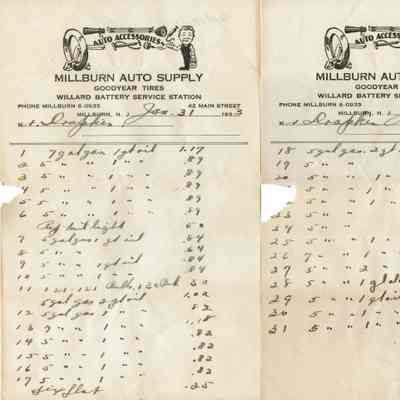 AUTO ACCESSORIES
MILLBURN AUTO SUPPLY
GOODYEAR TIRES
WILLARD BATTERY SERVICE STATION
PHONE MILLBURN 6-0935 42 MAIN STREET
MILLBURN, N. J. Jan. 31 193
M
1 7 gal gas 1 qt oil 1.17
2 5 " " 1 " " .89
3 5 " " 1 " " .89
4 5 " " 1 " " .89
5 5 " " 1 " " .89
6 5 " " 1 " " .89
light 50
7 5 gal gas 1 qt oil .84
8 5 " " .64
9 5 " " 1 qt oil .84
10 5 " " 1 " " .84
11 30
5 gal gas 2 qt oil 1.02
12 5 gal gas 1 " " .82
13 9 " " 1 " " 1.18
14 5 " " 1 " " .82
15 5 " " 1 " " .82
16 5 " " 1 " " .82
17 5 " " 1 " " .82
fix flat .25
AUTO ACCESS
MILLBURN AU
GOODYEAR
WILLARD BATTERY SERV
PHONE MILLBURN 6-0935
MILLBURN, N. J.
M
18 5 gal gas. 2 qt
19 5 " "
20 5 " " 1 "
5 " " 1 "
23 5 " "
24 5 " "
25 5 " " 1 "
26 7 " " 1 "
27 5 " " 2 "
28 5 " " 1 qt
29 5 " " 1 qt oil
30 5 " " 1 "
31 5 " " 1 "